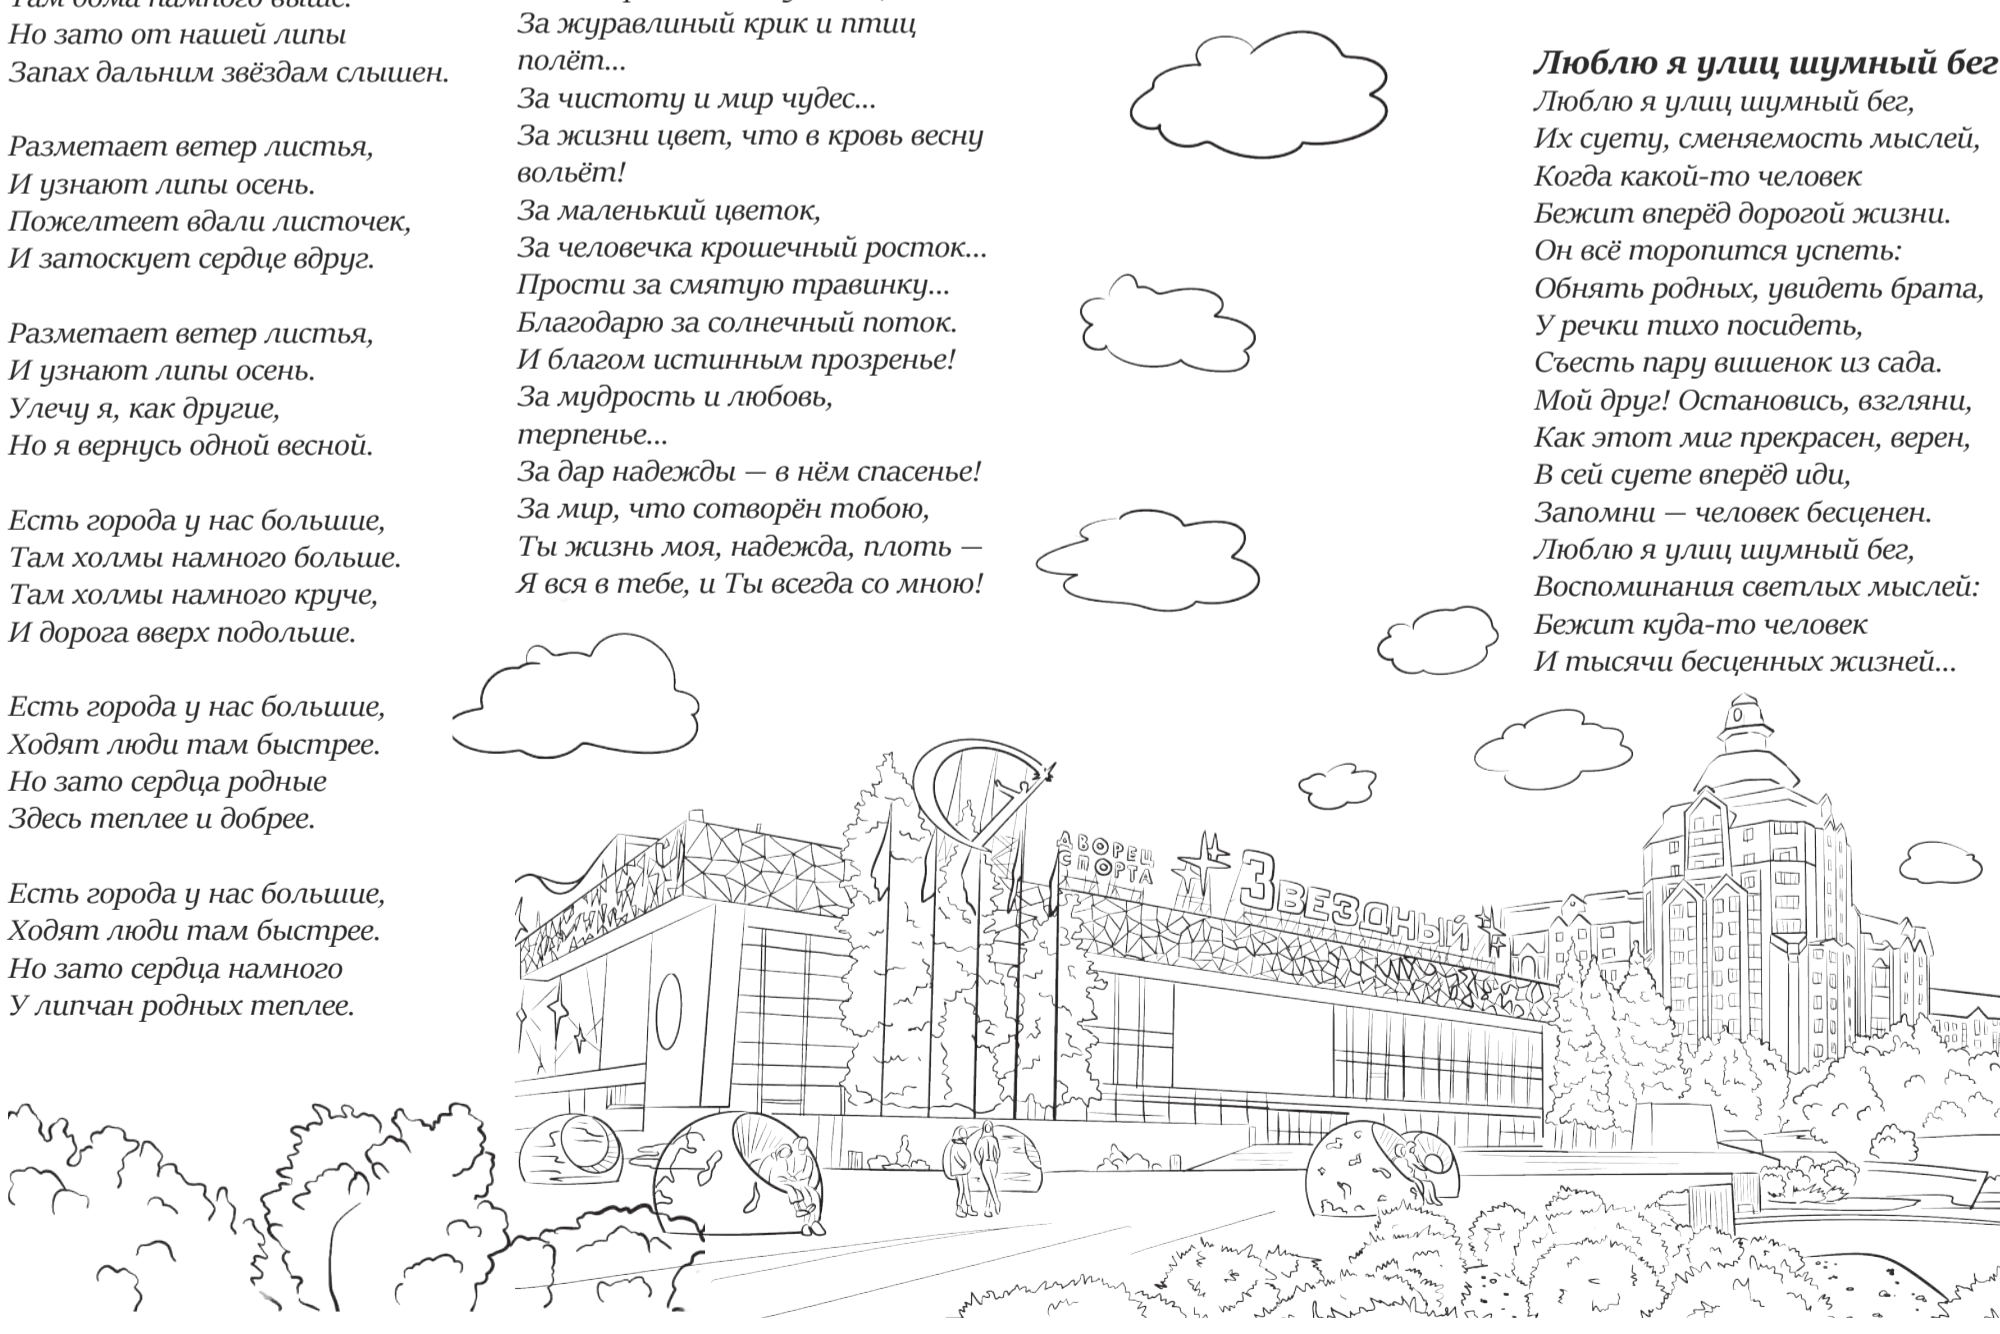 Там дома намного выше.
Но зато от нашей липы
Запах дальним звёздам слышен.
Разметает ветер листья,
И узнают липы осень.
Пожелтеет вдали листочек,
И затоскует сердце вдруг.
Разметает ветер листья,
И узнают липы осень.
Улечу я, как другие,
Но я вернусь одной весной.
Есть города у нас большие,
Там холмы намного больше.
Там холмы намного круче,
И дорога вверх подольше.
Есть города у нас большие,
Ходят люди там быстрее.
Но зато сердца родные
Здесь теплее и добрее.
Есть города у нас большие,
Ходят люди там быстрее.
Но зато сердца намного
У липчан родных теплее.
За журавлиный крик и птиц
полёт...
За чистоту и мир чудес...
За жизни цвет, что в кровь весну
вольёт!
За маленький цветок,
За человечка крошечный росток...
Прости за смятую травинку...
Благодарю за солнечный поток.
И благом истинным прозренье!
За мудрость и любовь,
терпенье...
За дар надежды — в нём спасенье!
За мир, что сотворён тобою,
Ты жизнь моя, надежда, плоть —
Я вся в тебе, и Ты всегда со мною!
Люблю я улиц шумный бег
Люблю я улиц шумный бег,
Их суету, сменяемость мыслей,
Когда какой-то человек
Бежит вперёд дорогой жизни.
Он всё торопится успеть:
Обнять родных, увидеть брата,
У речки тихо посидеть,
Съесть пару вишенок из сада.
Мой друг! Остановись, взгляни,
Как этот миг прекрасен, верен,
В сей суете вперёд иди,
Запомни — человек бесценен.
Люблю я улиц шумный бег,
Воспоминания светлых мыслей:
Бежит куда-то человек
И тысячи бесценных жизней...
ДВОРЕЦ
СПОРТА
ЗВЕЗДНЫЙ